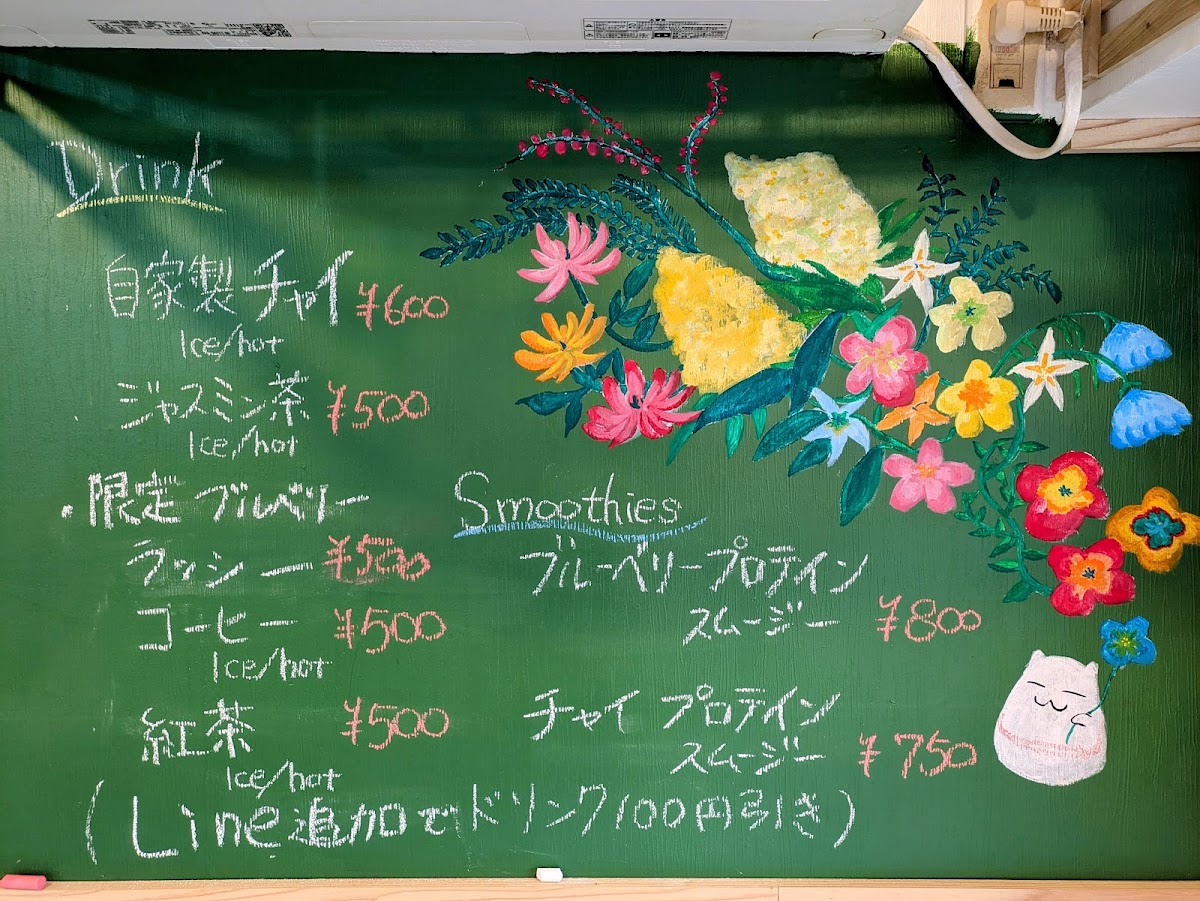 Drink
自家製チャイ ¥600
Ice/hot
ジャスミン茶 ¥500
Ice/hot
・限定ブルベリー
ラッシー ¥500
コーヒー ¥500
Ice/hot
紅茶 ¥500
Ice/hot
Smoothies
ブルーベリープロテイン
スムージー ¥800
チャイ プロテイン
スムージー ¥750
(Line追加でドリンク100円引き)